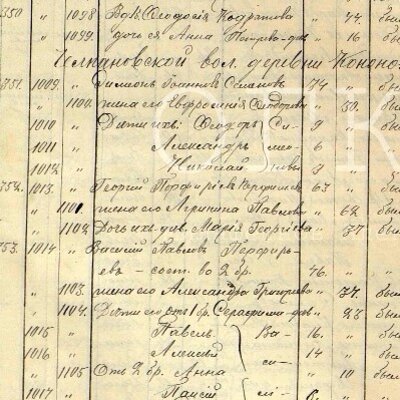 750 " 1098 Вдова Феодосія Кодратова " 44. был
" " 1099. дочь ея Анна Петрова-дѣв. " 16 был
Чепановской вол. деревни Кононо
751. 1009 " Симонъ Іоанновъ 74 " был
" " 1100. жена его Евфросинія Ѳеодорова " 50. был
" 1010 " Дѣти ихъ: Ѳеодоръ Си- 9 " был
" 1011 " Александръ мео- 6 "
" 1012 " Николай новы 3 "
752. 1013. " Георгій Порфирьевъ 63 " был
" " 1101. жена его Павлова " 62. был
" " 1102. Дочь ихъ дѣв. Марія Георгіева " 37 был
753. 1014 " Василій Павловъ Перфирь-
евъ - сост. во 2 бр. 46. " был
" " 1103. жена его Александра Григорьева " 37. был
" " 1104. Дѣти его отъ 1 бр. Серафима-дѣв. " 23 был
1015 " Павелъ Ва- 16. " был
" 1016 " Алексѣй си- 14 " был
" " 1105 Отъ 2 бр. Анна " 10 был
" 1017 " Паисій лі- 6. "